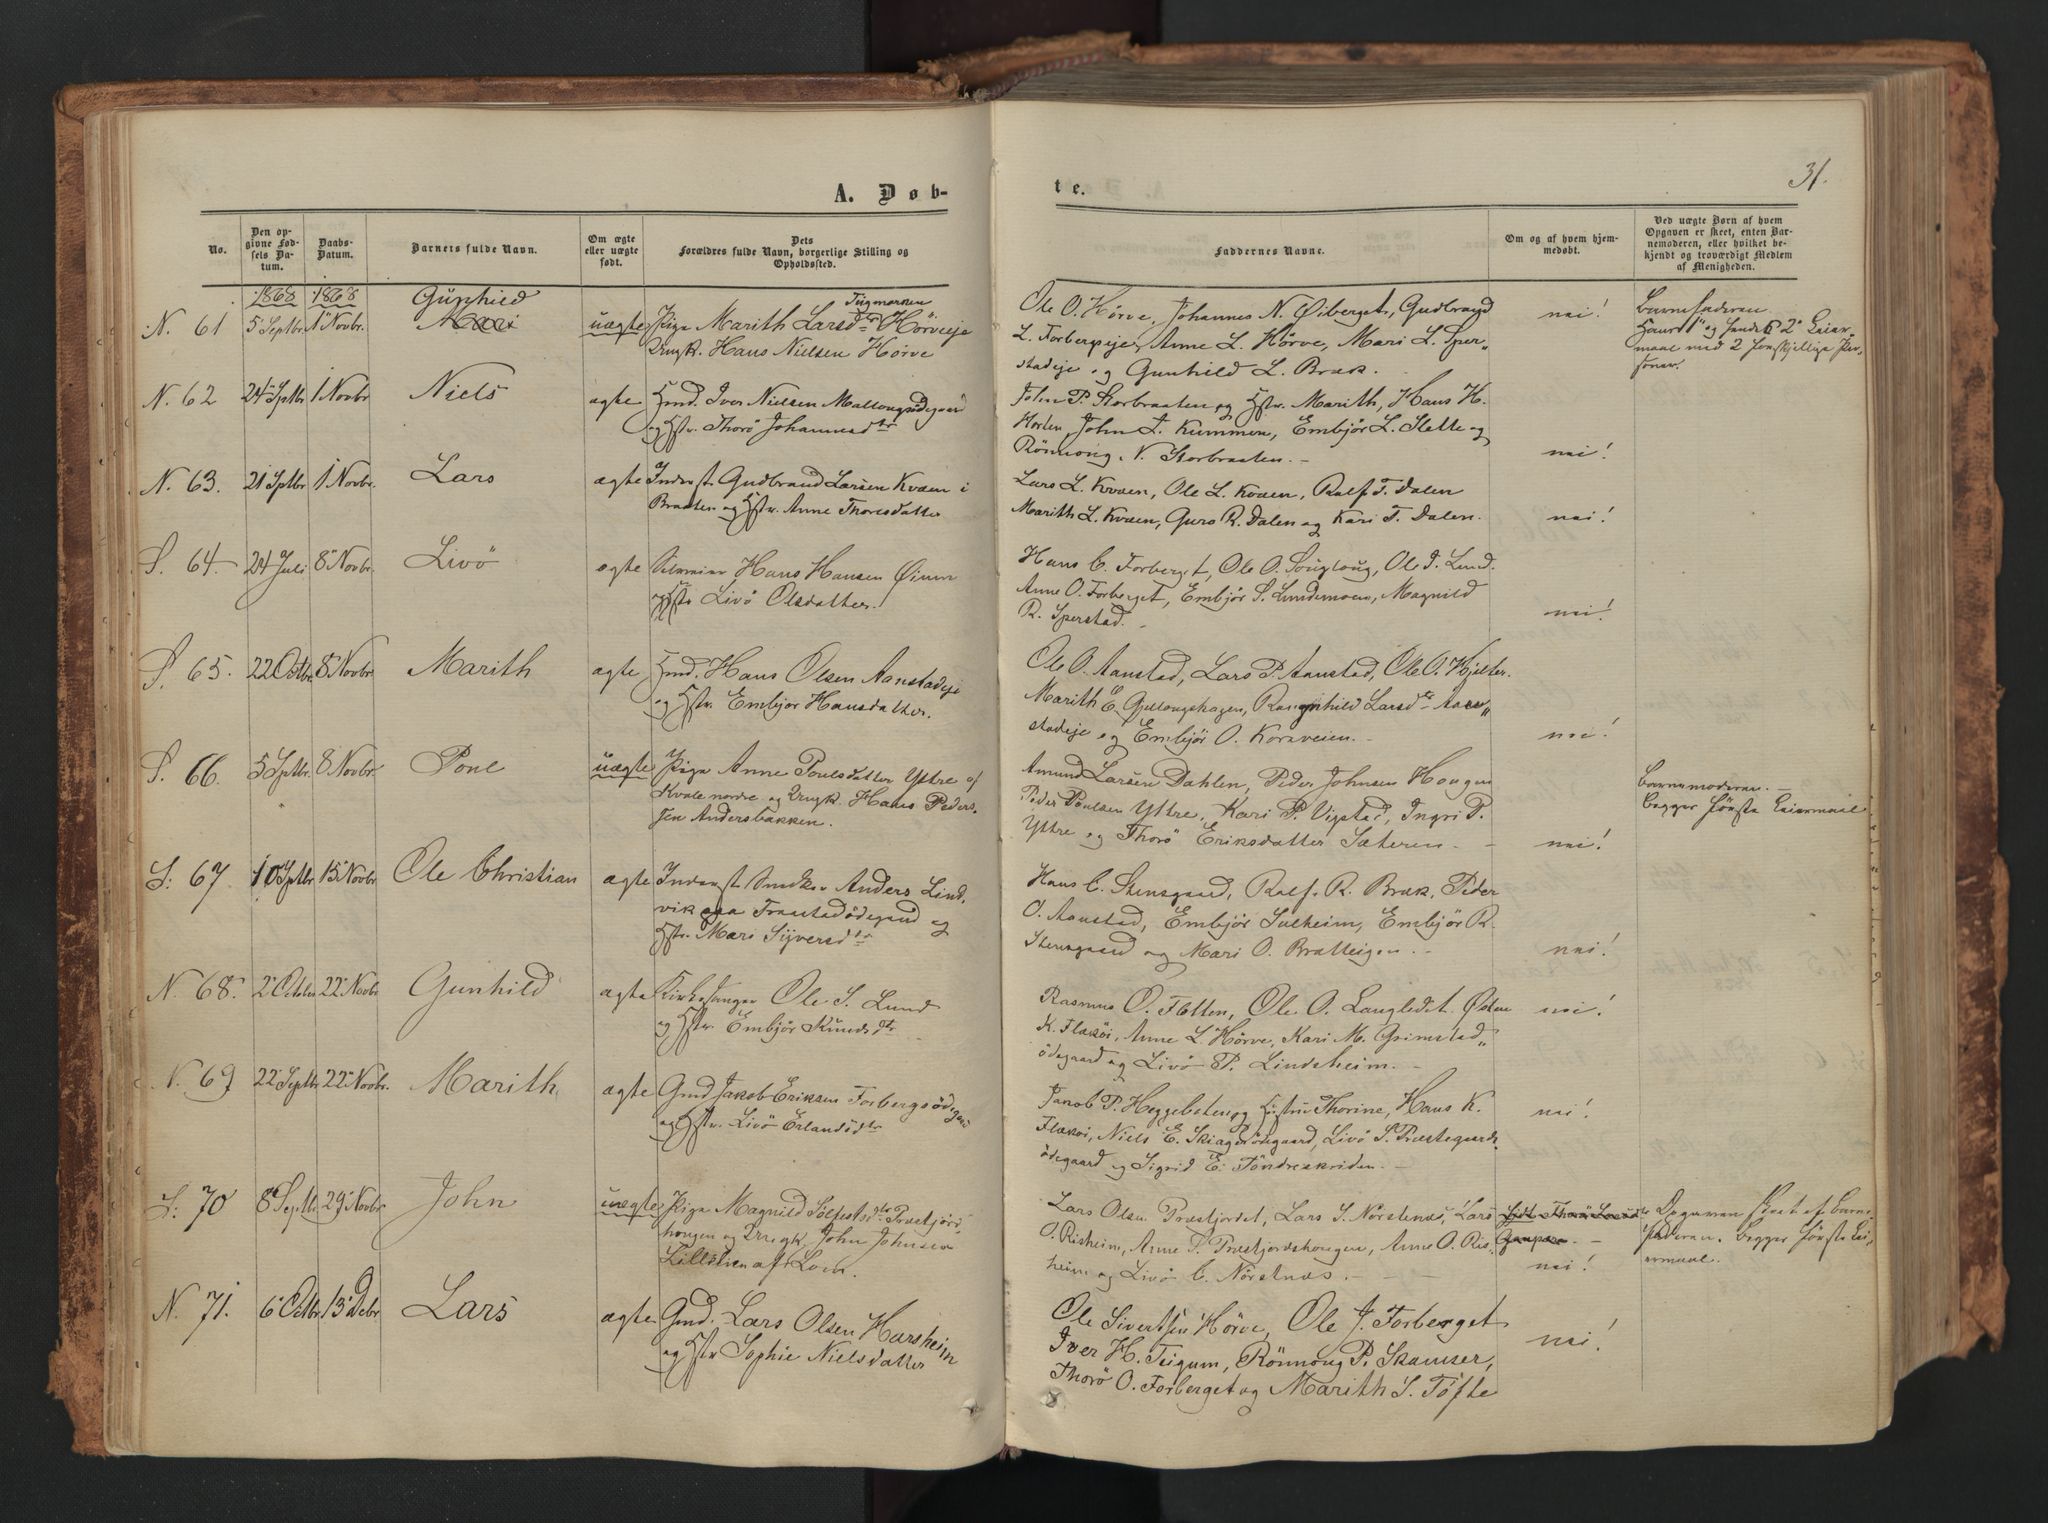 A. Døb-
te.
31.
No.
Den opgivne Fødsels Datum.
Daabs-Datum.
Barnets fulde Navn.
Om ægte eller uægte født.
Dets Forældres fulde Navn, borgerlige Stilling og Opholdssted.
Faddernes Navne.
Om og af hvem hjemmedøbt.
Ved uægte Børn af hvem Opgaven er skeet, enten Barnemoderen, eller hvilket bekjendt og troværdigt Medlem af Menigheden.
1868 1868
N. 61 5 Septbr. 1 Novbr. Gunhild uægte Pige Marith Larsdtr Hörveeje
Ungk. Hans Nielsen Hörve
Ole O. Hörve, Johannes N. Öiberget, Gudbrand
L. Forbergseje, Anne L. Hörve, Mari L. Sper-
stadeje og Gunhild L. Bræk.
nei!
Barnefaderen
N. 62 24 Sptbr 1 Novbr Niels ægte Gmd. Iver Nielsen
og Hstr. Thorö Johannesdtr
John P. Storbraaten og Hstr. Marith, Hans H.
Horten, John L. Kummen, Embjör L. Slette og
Rönnoug N. Storbraaten.
nei!
N. 63. 21 Sptbr 1 Novbr. Lars ægte Inderst Gudbrand Larsen Kvæen i
Braaten og Hstr. Anne Thoresdatter
Lars L. Kvæen, Ole L. Kvæen, Ralf T. Dalen
Marith L. Kvæen, Guro R. Dalen og Kari T. Dalen.
nei!
S. 64. 24 Juli 8 Novbr. Livö ægte Hans Hansen
og Hstr Livö Olsdatter.
Hans C. Forberget, Ole O. Ole J. Lund.
Anne O. Forberget, Embjör S. Lundemoen, Magnild
R. Sperstad.
nei!
S. 65. 22 Octbr. 8 Novbr. Marith ægte Hmd. Hans Olsen Aanstadeje
og Hstr. Embjör Hansdatter.
Ole O. Aanstad, Lars P. Aanstad, Ole O. Hjelter.
Marith E. Gjellongshagen, Rangnhild Larsdtr Aan-
stadeje og Embjör O. Korsveien.
nei!
S. 66. 5 Sptbr. 8 Novbr. Poul uægte Pige Anne Poulsdatter Yttre af
Kvale nordre og Ungk. Hans Peder-
sen Andersbakken.
Amund Larsen Dahlen, Peder Johnsen Hougen
Peder Poulsen Yttre, Kari P. Vigstad, Ingri P.
Yttre og Thorö Eriksdatter Sæteren.
nei!
Barnemoderen.
begges förste Leiermaal
S: 67 10 Sptbr. 15 Novbr Ole Christian ægte Inderst Smeker Anders Lind-
vik paa og
Hstr. Mari Sijversdtr
Hans C. Stensgaard, Ralf R. Bræk, Peder
O. Aanstad, Embjör Sulheim, Embjör R.
Stensgaard og Mari O. Bratteigen.
nei!
N. 68. 2 Octbr 22 Novbr Gunhild ægte Kirkesanger Ole S. Lund
og Hstr. Embjör Knudsdtr
Rasmus O. Flotten, Ole O. Langledet, Östen
K. Flæköi, Anne L Hörve, Kari M. Grimstad-
ödegaard og Livö P. Lindsheim.
nei!
N. 69 22 Septbr 22 Novbr. Marith ægte Gmd Jakob Eriksen Forbergsödegaard
og Hstr. Livö Erlandsdtr
Jacob P. Heggebotten og Hustru Thorine, Hans K.
Flækøi, Niels E. Skiagerödegaard, Livö S. Præstegaards-
ödegaard og Sigrid E. Töndreskriden.
nei!
S: 70 8 Septbr 29 Novbr. John uægte Pige Magnild Sölfestsdtr Præstjörds-
hougen og Ungk. John Johnsen
af Lom.
Lars Olsen Præstjordet, Lars S. Nörstenæs, Lars
O. Risheim, Anne S. Præstjordshougen, Anne O. Ris-
heim og Livö C. Nörstnæs.
nei!
Opgaven skeet af Barne-
faderen. begges förste Lei-
ermaal.
N. 71. 6 Octbr. 13 Debr. Lars ægte Gmd. Lars Olsen Harsheim
og Hstr Sophie Nielsdatter
Ole Sivertsen Hörve, Ole J. Forberget
Iver H. Teigum, Rönnoug P. Skamser,
Thorö O. Forberget og Marith S. Töfte
nei!